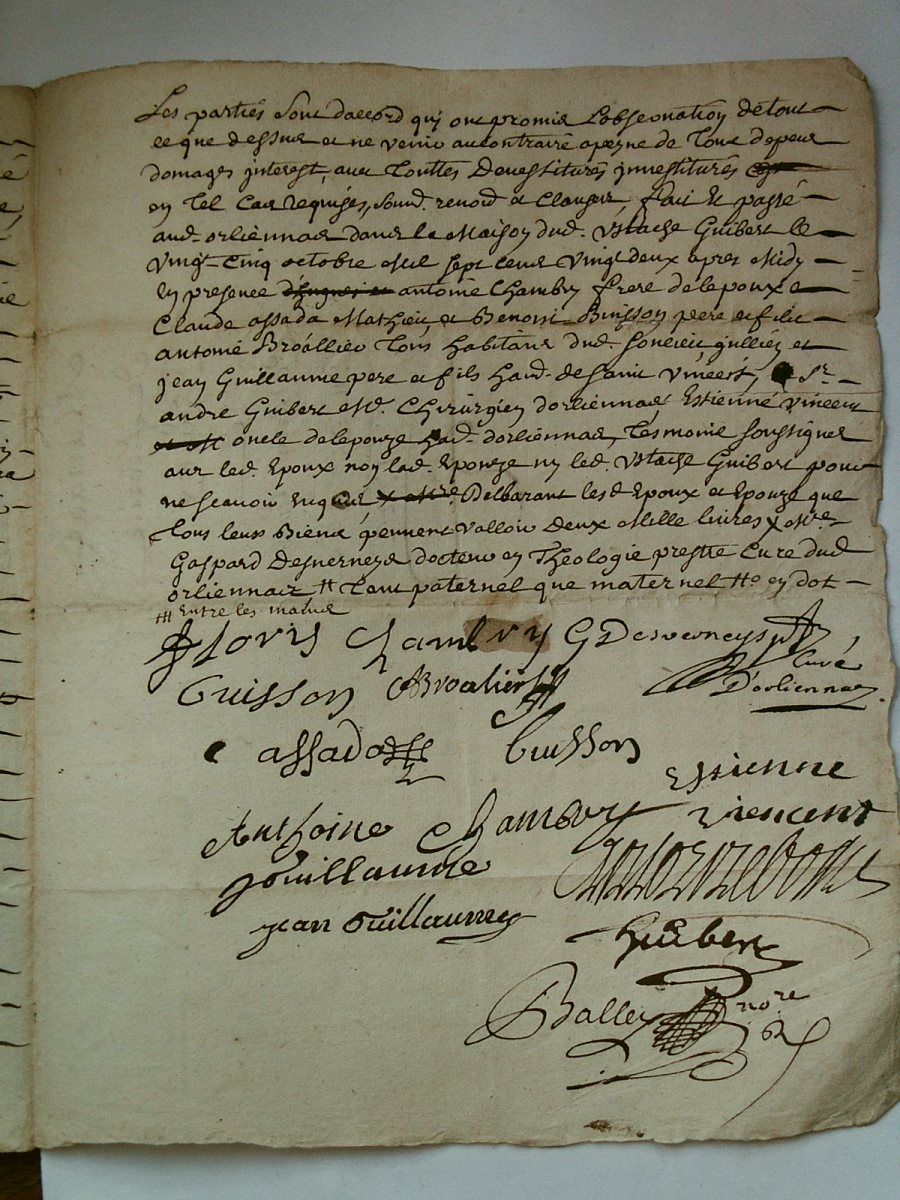 Les parties sont daccord qui ont promis Lobservation de tout
ce que dessus et ne venir au contraire a peyne de Tous depens
domages interest, aux Touttes Devestitures jnvestitures
en Tel Cas Requises, soumd. renond. et Clauses, fait et passé
aud. orliennas dans la Maison dud. Ustache Guibert le
vingt Cinq octobre Mil sept Cens vingt deux apres Midy
En presence d'hugues et antoine Chambry frere de lepoux et
Claude assada Mathieu, et Benoist Buisson pere et fils
antoine Broallier Tous habitans dud. soucieu jullien et
jean Guillaume pere et fils hand. de saint Vincent, Sr.
andre Guibert Me. Chirurgien dorliennas Estienne Vincent
oncle de lepouze hand. dorliennas, Tesmoins soussignes
avec led. Epoux non lad. Epouze ny led. Ustache Guibert pour
ne scavoir Enquis, Declarant lesd Epoux et Epouze que
Tous leurs Biens peuvent valloir deux Mille livres x Mre
Gaspard Desverneys docteur en Theologie prestre Curé dud
orliennas # tant paternel que maternel ## en dot
### Entre les mains
floris Chambry G Desverneys ptr
Curé
D'orliennas
buisson ABroalier
assado buisson
Estienne
viencent
Anthoine Chambry
gouillaume
jean Guillaumes
Guibert
Balley nore